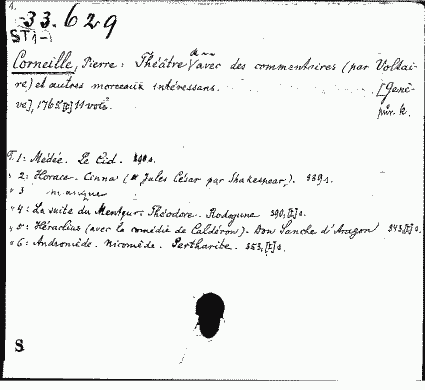 33.629
ST 1-
Corneille, Pierre: Théâtre avec des commentaires (par Voltai-
re) et autres morceaux intéressans. [Genè-
ve], 1765 [E] 11 vols.
T. 1: Médée. Le Cid.
" 2: Horace. Cinna (Jules César par Shakespear,). 389 s.
" 3 manque
" 4: La suite du Menteur. Théodore. Rodogune 390, [E] s.
" 5: Héraclius (avec la comédie de Caldéron). Don Sanche d'Aragon 343, [E] s.
" 6: Andromède. Nicomède. Pertharite. 353, [E] s.
S